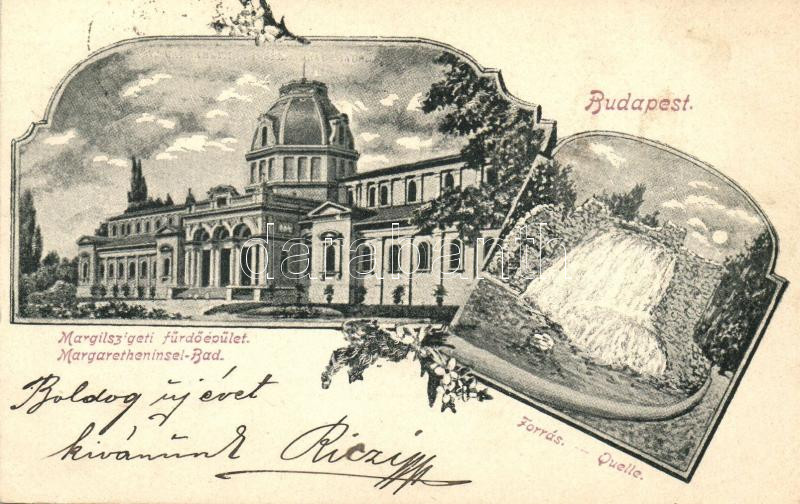 Budapest.
Margilsz'geti fürdőépület.
Margaretheninsel-Bad.
Forrás. — Quelle.
Boldog új évet
kívánunk Riczi
darabanth